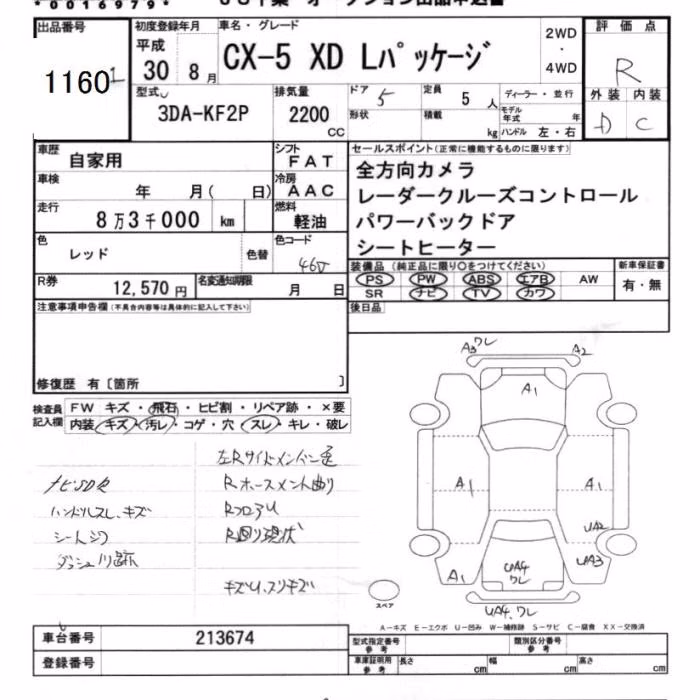 *0016979*
出品番号
11601
初度登録年月
平成
30 8月
車名・グレード
CX-5 XD Lパッケージ
2WD
・
4WD
評価点
R
外装 内装
D C
型式
3DA-KF2P
排気量
2200
CC
ドア 5
形状
定員 5人
積載 kg
ディーラー・並行
モデル年式 年
ハンドル 左・右
車歴 自家用
シフト FAT
車検 年 月( 日)
冷房 AAC
走行 8万3千000 km
燃料 軽油
セールスポイント(正常に機能するものに限ります)
全方向カメラ
レーダークルーズコントロール
パワーバックドア
シートヒーター
色 レッド 色替
色コード 46V
装備品 (純正品に限り〇をつけてください)
PS PW ABS エアB AW
SR ナビ TV カワ
新車保証書
有・無
R券 12,570円
名変通知期限 月 日
後日品
注意事項申告欄(不具合内容等は具体的に記入して下さい)
修復歴 有〔箇所 〕
検査員記入欄
FW キズ・飛石・ヒビ割・リペア跡・×要
内装 キズ・汚レ・コゲ・穴・スレ・キレ・破レ
ナビSD欠
ハンドルスレ、キズ
シートシワ
R回り現状
A3 ワレ
A2
A1
A1
A1
UA2
UA3
A1
UA4
ワレ
UA4、ワレ
スペア
A－キズ E－エクボ U－凹み W－補修跡 S－サビ C－腐食 XX－交換済
車台番号 213674
登録番号
型式指定番号 参考
類別区分番号 参考
車庫証明用 参考
長さ cm
幅 cm
高さ cm